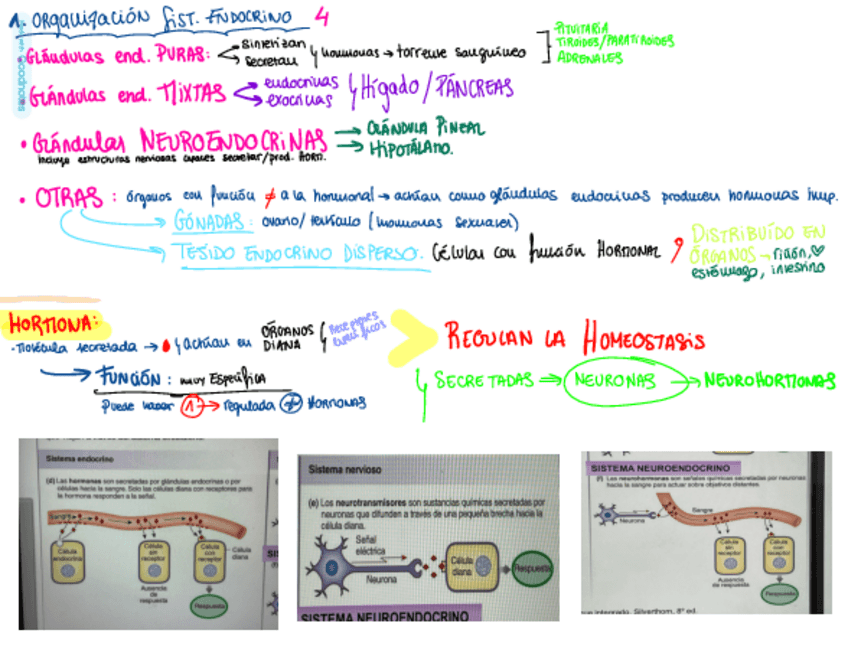 1. ORGANIZACIÓN SIST. ENDOCRINO 4
• GLÁNDULAS end. PURAS: sintetizan secretan hormonas → torrente sanguíneo
PITUITARIA
TIROIDES/PARATIROIDES
ADRENALES
GLÁNDULAS end. MIXTAS endocrinas exocrinas Hígado / PÁNCREAS
• GLÁNDULAS NEUROENDOCRINAS → GLÁNDULA PINEAL
→ HIPOTÁLAMO.
incluye estructuras nerviosas capaces secretar/prod. HORM.
• OTRAS: órganos con función ≠ a la hormonal → actúan como glándulas endocrinas producen hormonas imp.
GÓNADAS: ovario/ testículo (hormonas sexuales)
TEJIDO ENDOCRINO DISPERSO. Células con función HORMONAL
DISTRIBUÍDO EN
ÓRGANOS → riñón,
estómago, intestino
HORMONA:
• Molécula secretada → y actúan en ÓRGANOS DIANA
RECEPTORES
ESPECÍFICOS
REGULAN LA HOMEOSTASIS
→ FUNCIÓN: muy ESPECÍFICA
SECRETADAS ⇒ NEURONAS → NEUROHORMONAS
Puede haber 1 → regulada + HORMONAS
Sistema endocrino
(d) Las hormonas son secretadas por glándulas endocrinas o por
células hacia la sangre. Solo las células diana con receptores para
la hormona responden a la señal.
Sangre
Célula endocrina
Célula sin receptor
Célula con receptor
Célula diana
Ausencia de respuesta
Respuesta
Sistema nervioso
(e) Los neurotransmisores son sustancias químicas secretadas por
neuronas que difunden a través de una pequeña brecha hacia la
célula diana.
Señal eléctrica
Neurona
Célula diana
Respuesta
SISTEMA NEUROENDOCRINO
SISTEMA NEUROENDOCRINO
(f) Las neurohormonas son señales químicas secretadas por neuronas
hacia la sangre para actuar sobre objetivos distantes.
Sangre
Neurona
Célula sin receptor
Célula con receptor
Ausencia de respuesta
Respuesta
integrado, Silverthorn, 8ª ed.